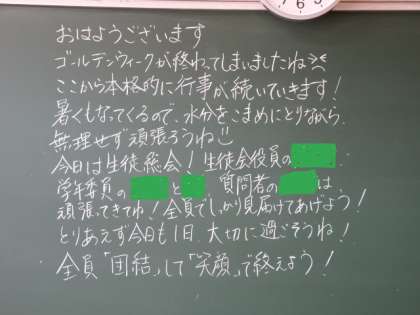 おはようございます
ゴールデンウィークが終わってしまいましたね
ここから本格的に行事が続いていきます！
暑くもなってくるので、水分をこまめにとりながら、
無理せず頑張ろうね
今日は生徒総会！生徒会役員の
学年委員の と 、質問者の は、
頑張ってきてね！全員でしっかり見届けてあげよう！
とりあえず今日も1日、大切に過ごそうね！
全員「団結」して「笑顔」で終えよう！